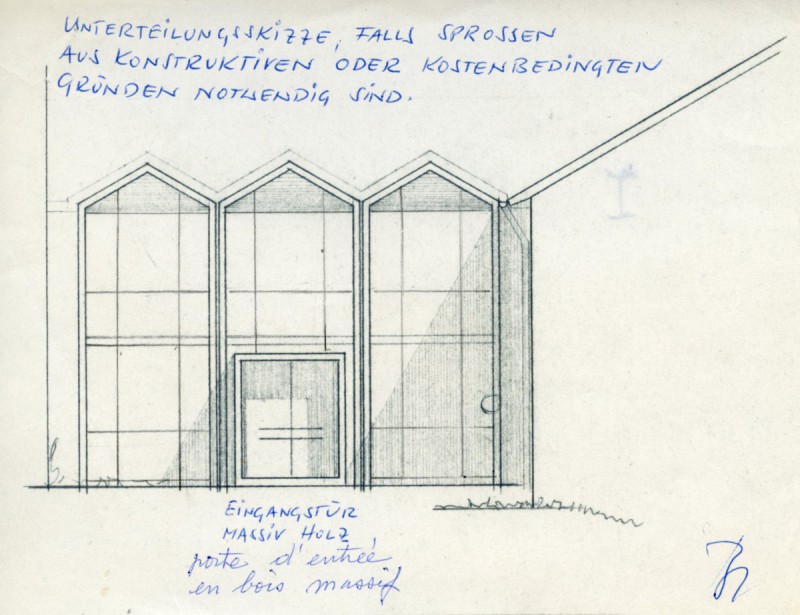 UNTERTEILUNGSSKIZZE, FALLS SPROSSEN
AUS KONSTRUKTIVEN ODER KOSTENBEDINGTEN
GRÜNDEN NOTWENDIG SIND.
EINGANGSTÜR
MASSIV HOLZ
porte d'entrée
en bois massif